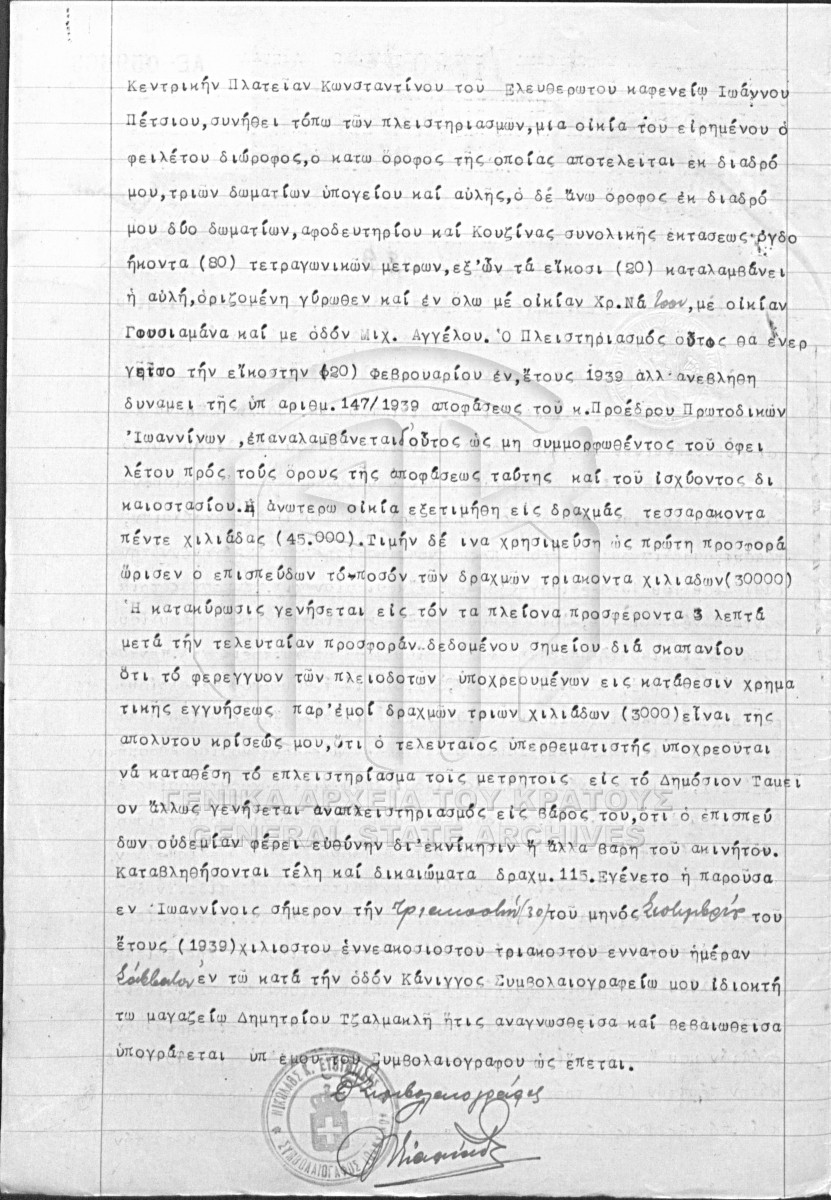 Κεντρικήν Πλατεῖαν Κωνσταντίνου του Ελευθερωτου καφενείῳ Ἰωάννου
Πέτσιου,συνήθει τόπω τῶν πλειστηριασμων,μια οἰκία τοῦ εἰρημένου ὀ
φειλέτου διώροφος,ὁ κατω ὄροφος τῆς οποίας αποτελειται εκ διαδρό
μου,τριῶν δωματίων ὑπογείου καί αὐλῆς,ὁ δέ ἄνω ὄροφος ἐκ διαδρό
μου δύο δωματίων,αφοδευτηρίου καί Κουζίνας συνολικῆς εκτασεως ὀγδο
ήκοντα (80) τετραγωνικῶν μετρων,εξ'ὧν τά εἴκοσι (20) καταλαμβάνει
ἡ αὐλή,ὁριζομένη γύρωθεν καί ἐν ὅλω μέ οἰκίαν Χρ.Νά ,μέ οἰκίαν
Γουσιαμάνα καί με ὁδόν Μιχ. Αγγέλου. Ὁ Πλειστηριασμός οὗτος θα ἐνερ
γεῖτο τήν εἴκοστην (20) Φεβρουαρίου ἐν,ἔτους 1939 ἀλλ'ανεβλήθη
δυναμει τῆς ὑπ αριθμ.147/1939 αποφάσεως τοῦ κ.Προέδρου Πρωτοδικῶν
Ἰωαννίνων ,ἐπαναλαμβάνεται οὗτος ὡς μη συμμορφωθέντος τοῦ ὀφει
λέτου πρός τούς ὅρους τῆς ἀποφάσεως ταύτης καί τοῦ ἰσχύοντος δι
καιοστασίου.Ἡ ἀνωτερω οἰκία εξετιμήθη εἰς δραχμάς τεσσαρακοντα
πέντε χιλιάδας (45.000).Τιμήν δέ ινα χρησιμεύση ὡς πρώτη προσφορά
ὥρισεν ο επισπεύδων τό ποσόν τῶν δραχμῶν τριακοντα χιλιαδων(30000)
Ἡ κατακύρωσις γενήσεται εἰς τόν τα πλείονα προσφέροντα 3 λεπτά
μετά τήν τελευταίαν προσφοράν..δεδομένου σημείου διά σκαπανίου
ὅτι τό φερεγγυον τῶν πλειοδοτων ὑποχρεουμένων εις κατάθεσιν χρημα
τικῆς εγγυήσεως παρ'ἐμοί δραχμῶν τριῶν χιλιάδων (3000)εἶναι της
απολύτου κρίσεώς μου,ὅτι ὁ τελευταῖος ὑπερθεματιστής ὑποχρεοῦται
νά καταθέση τό επλειστηρίασμα τοῖς μετρητοις εἰς τό Δημόσιον Ταμει
ον ἄλλως γενήσεται ἀναπλειστηριασμός εἰς βάρος του,οτι ὁ επισπεύ
δων οὐδεμίαν φέρει εὐθύνην δι'εκνίκησιν ἤ ἄλλα βαρη τοῦ ακινήτου.
Καταβληθήσονται τέλη καί δικαιώματα δραχμ.115.Εγένετο ἡ παροῦσα
εν Ἰωαννίνοις σήμερον τήν τριακοστήν(30)τοῦ μηνός Σεπτεμβρίου του
ἔτους (1939)χιλιοστου ἐννεακοσιοστου τριακοστου εννατου ἡμέραν
Σάββατον ἐν τῶ κατά τήν ὁδόν Κάνιγγος Συμβολαιογραφείω μου ἰδιοκτή
τω μαγαζείω Δημητρίου Τζαλμακλῆ ἥτις αναγνωσθεισα καί βεβαιωθεισα
ὑπογράφεται ὑπ ἐμοῦ τοῦ Συμβολαιογραφου ὡς ἕπεται.
Ὁ Συμβολαιογράφος
ΓΕΝΙΚΑ ΑΡΧΕΙΑ ΤΟΥ ΚΡΑΤΟΥΣ
GENERAL STATE ARCHIVES